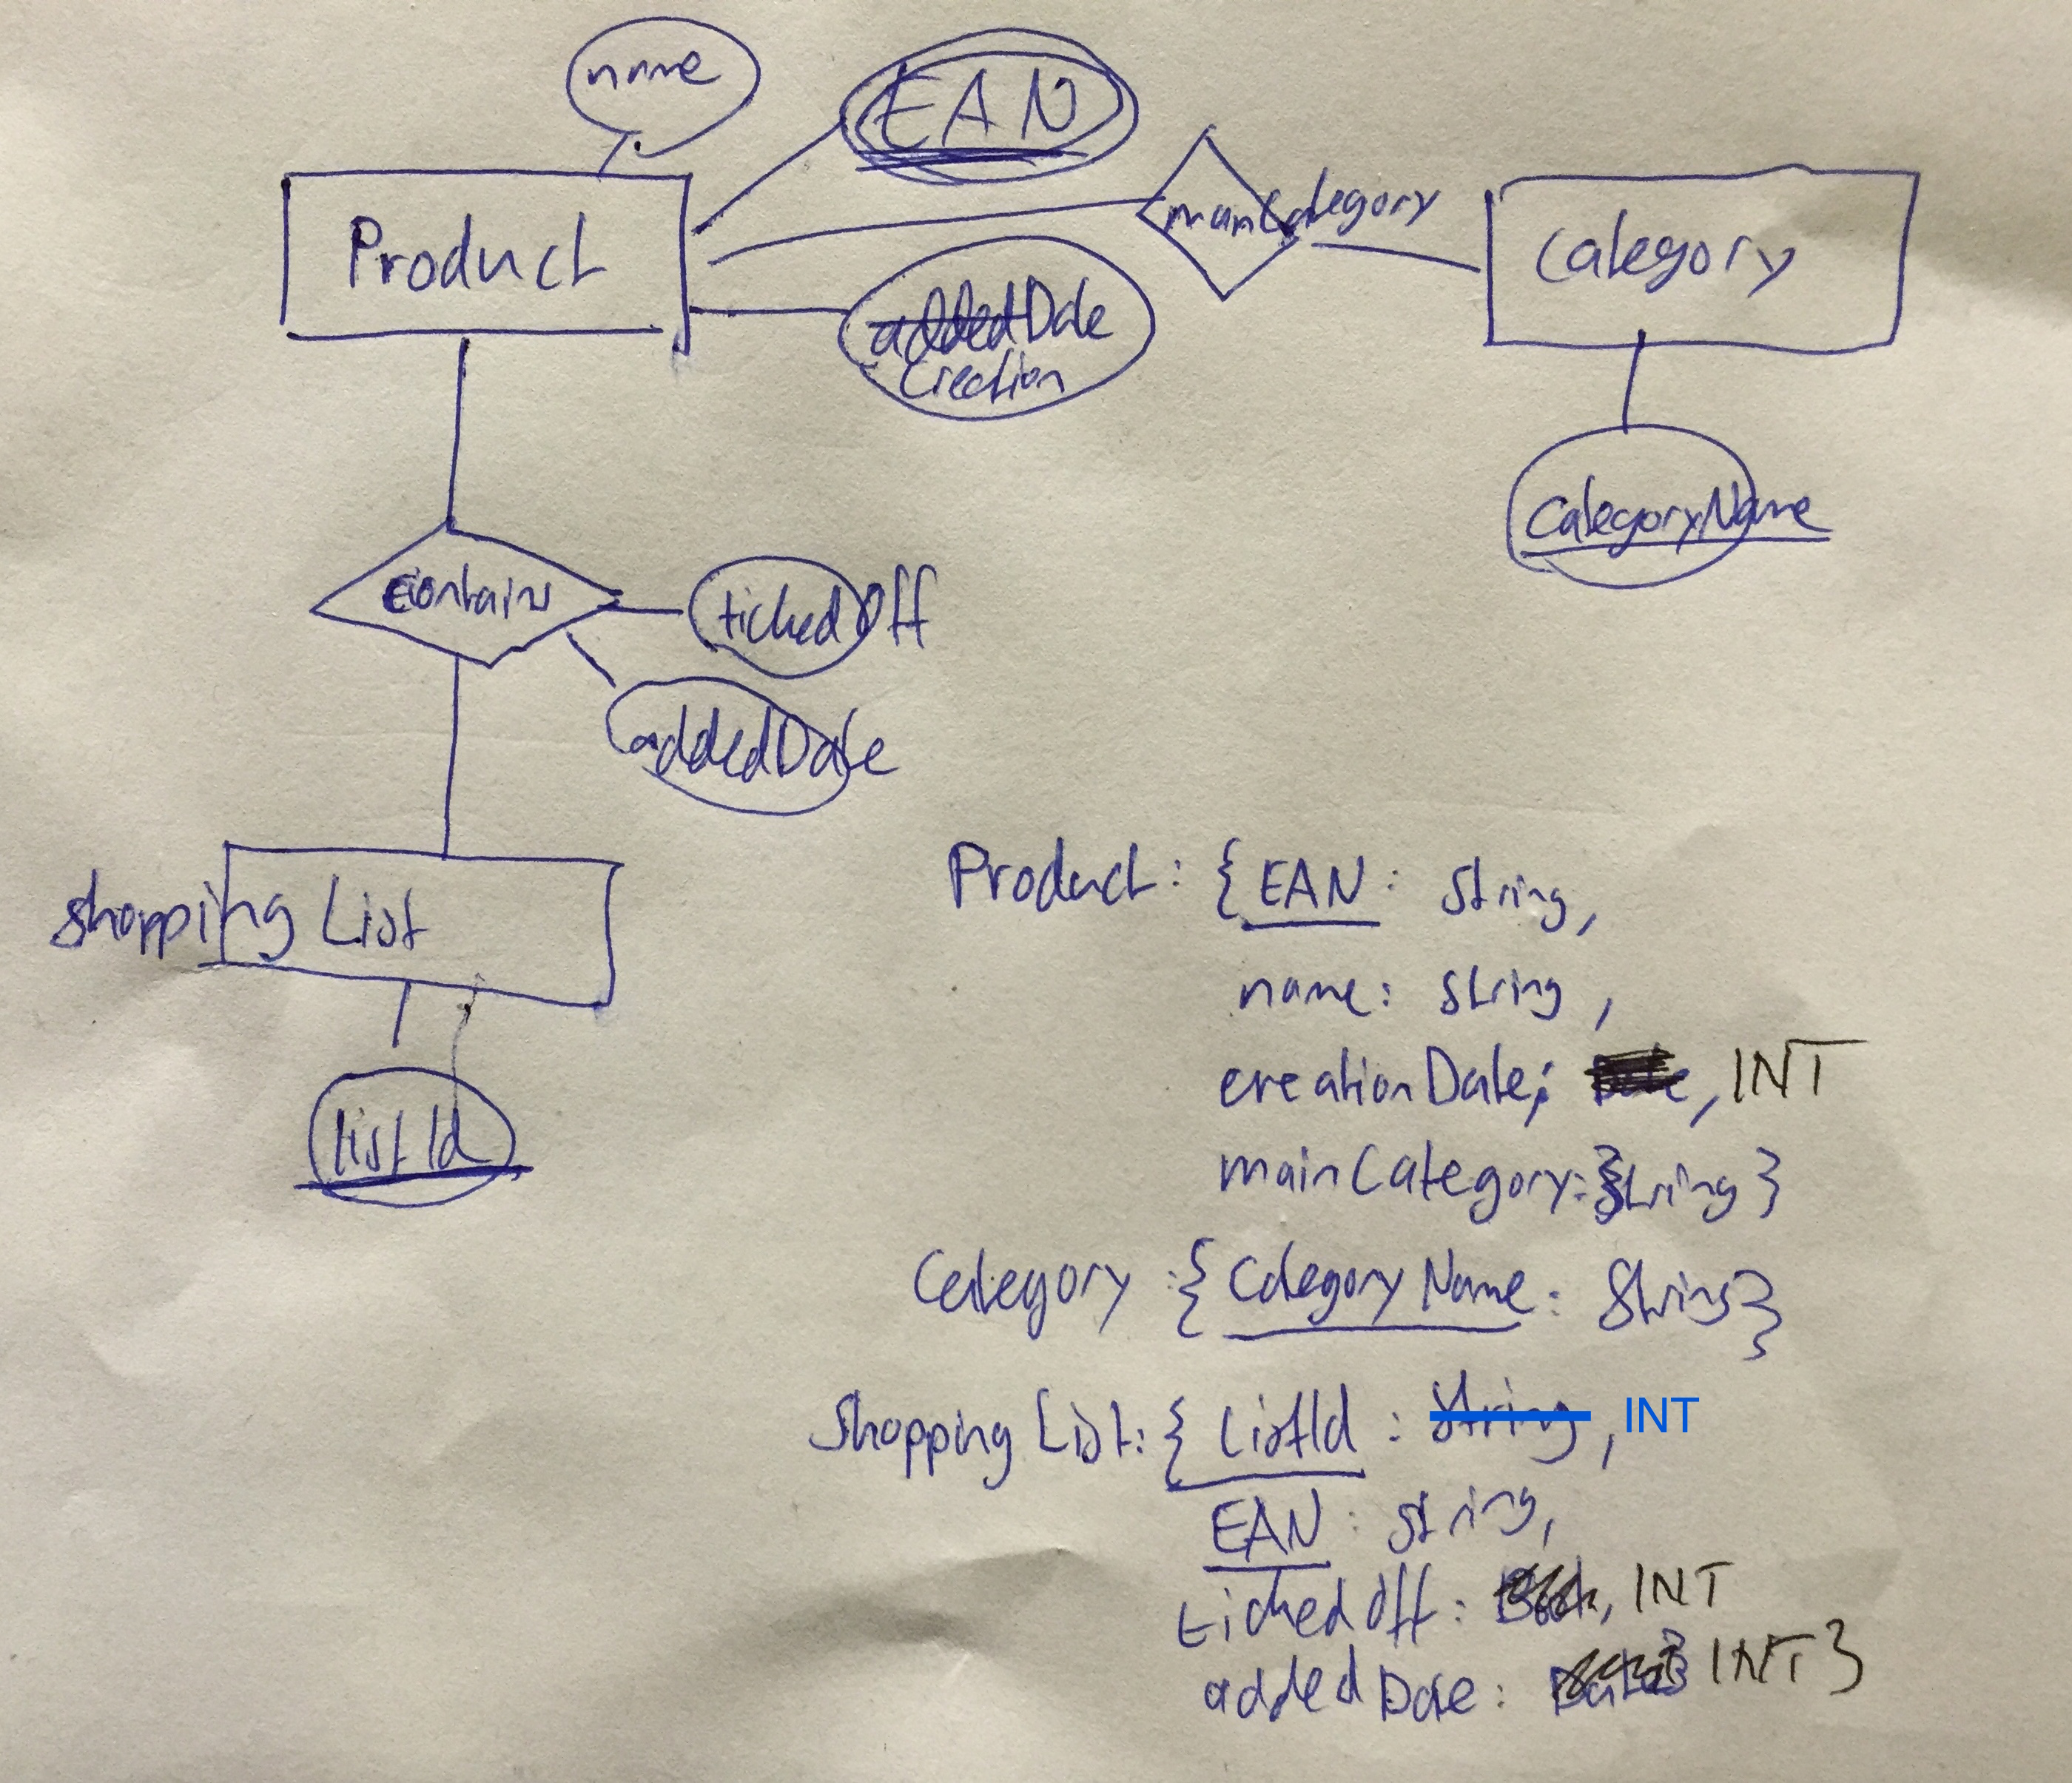 name
EAN
Product
mainCategory
Category
addedDate
Creation
CategoryName
Contains
tickedOff
addedDate
shopping List
listId
Product: {EAN: String,
name: string,
creationDate: , INT
mainCategory: String}
Category: {CategoryName: String}
Shopping List: {ListId: String, INT
EAN: string,
tickedOff: , INT
addedDate: INT}